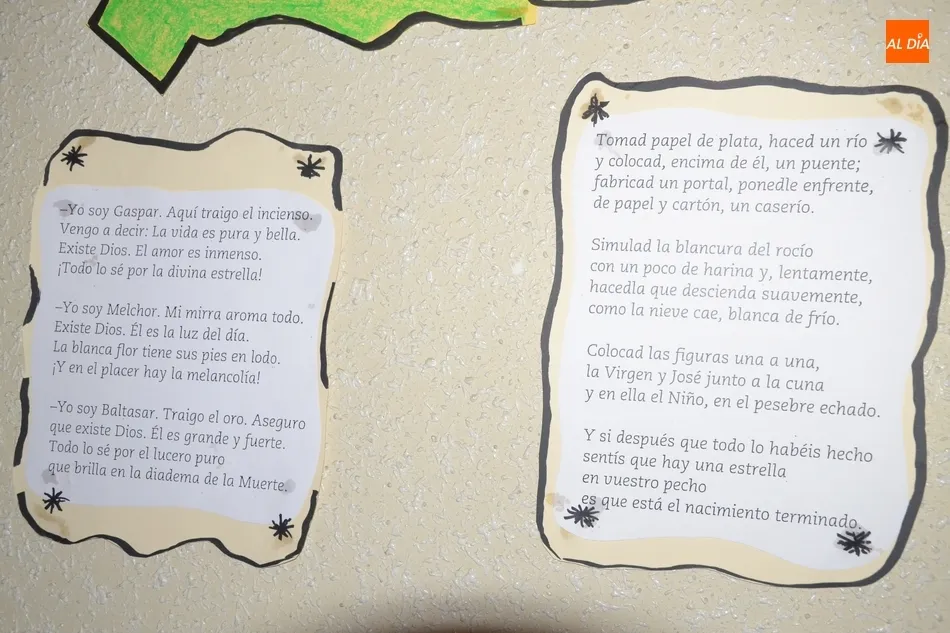 –Yo soy Gaspar. Aquí traigo el incienso.
Vengo a decir: La vida es pura y bella.
Existe Dios. El amor es inmenso.
¡Todo lo sé por la divina estrella!
–Yo soy Melchor. Mi mirra aroma todo.
Existe Dios. Él es la luz del día.
La blanca flor tiene sus pies en lodo.
¡Y en el placer hay la melancolía!
–Yo soy Baltasar. Traigo el oro. Aseguro
que existe Dios. Él es grande y fuerte.
Todo lo sé por el lucero puro
que brilla en la diadema de la Muerte.
Tomad papel de plata, haced un río
y colocad, encima de él, un puente;
fabricad un portal, ponedle enfrente,
de papel y cartón, un caserío.
Simulad la blancura del rocío
con un poco de harina y, lentamente,
hacedla que descienda suavemente,
como la nieve cae, blanca de frío.
Colocad las figuras una a una,
la Virgen y José junto a la cuna
y en ella el Niño, en el pesebre echado.
Y si después que todo lo habéis hecho
sentís que hay una estrella
en vuestro pecho
es que está el nacimiento terminado.
AL DÍA